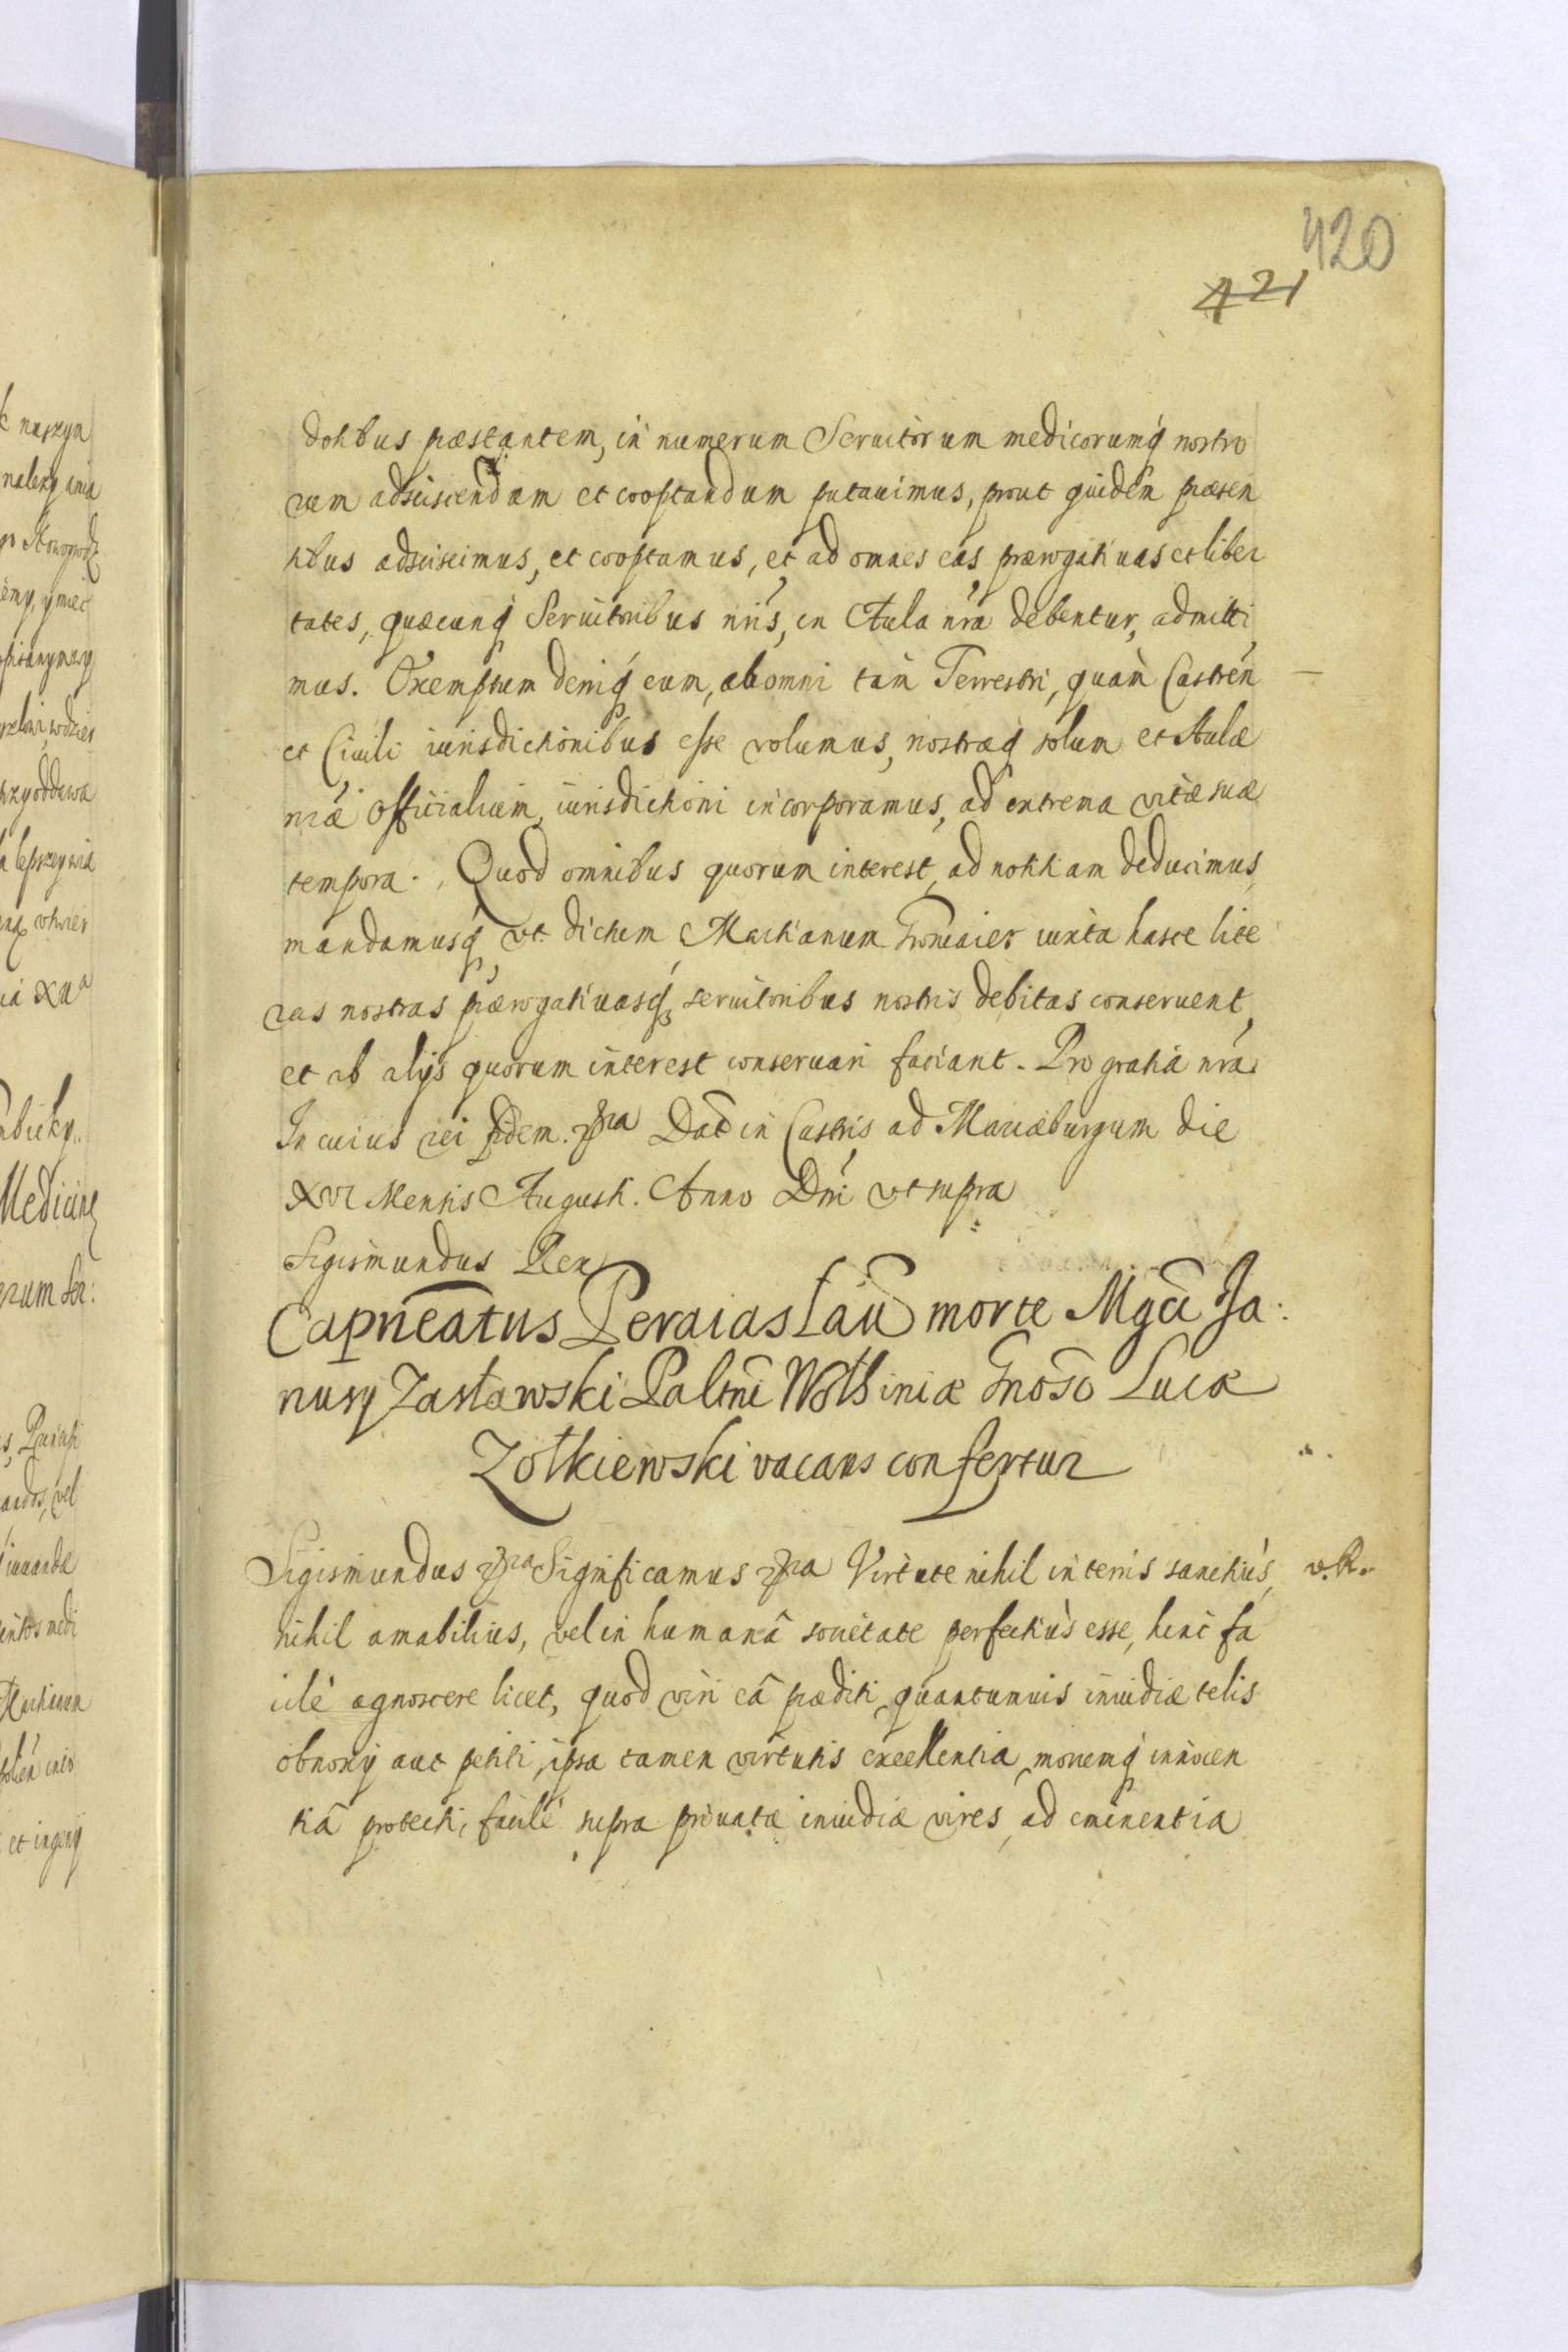 420
421
dotibus præstantem, in numerum Seruitorum medicorumq́ nostro
rum adsciscendum et cooptandum putauimus, prout quidem præsen
tibus adsciscimus, et cooptamus, et ad omnes eas prærogatiuas et liber
tates, quæcunq́ Seruitoribus nr̃is, in Aula nr̃a debentur, admitti
mus. Exemptum deniq́ eum, ab omni tàm Terrestri, quàm Castreñ
et Ciuili iurisdictionibus esse volumus, nostræq́ solum et Aulæ
nr̃æ Officialium, iurisdictioni incorporamus, ad extrema vitæ suæ
tempora. Quod omnibus quorum interest, ad notitiam deducimus,
mandamusq́, vt dictum Matthianum iuxta hasce lite
ras nostras prærogatiuasq́, seruitoribus nostris debitas conseruent,
et ab alijs quorum interest conseruari faciant. Pro gratia nr̃a
In cuius rei fidem. &ra Dat in Castris ad Mariæburgum die
XVI Mensis Augusti. Anno Dnĩ vt supra
Sigismundus Rex
Capneatus Peraiaslaũ morte Mgcĩ Ja:
nusij Zasławski Paltnĩ Wolhiniæ Gnoso Lucæ
Zołkiewski vacans confertur
Sigismundus &ra Significamus &ra Virtute nihil in terris sanctiùs, v.R.
nihil amabilius, vel in humanâ societate perfectiùs esse, hinc fa
cilè agnoscere licet, quod viri eâ præditi, quantumuis inuidiæ telis
obnoxij aut petiti, ipsa tamen virtutis excellentia, morumq́ innocen
tiâ protecti, facilè supra priuatæ inuidiæ vires, ad eminentia